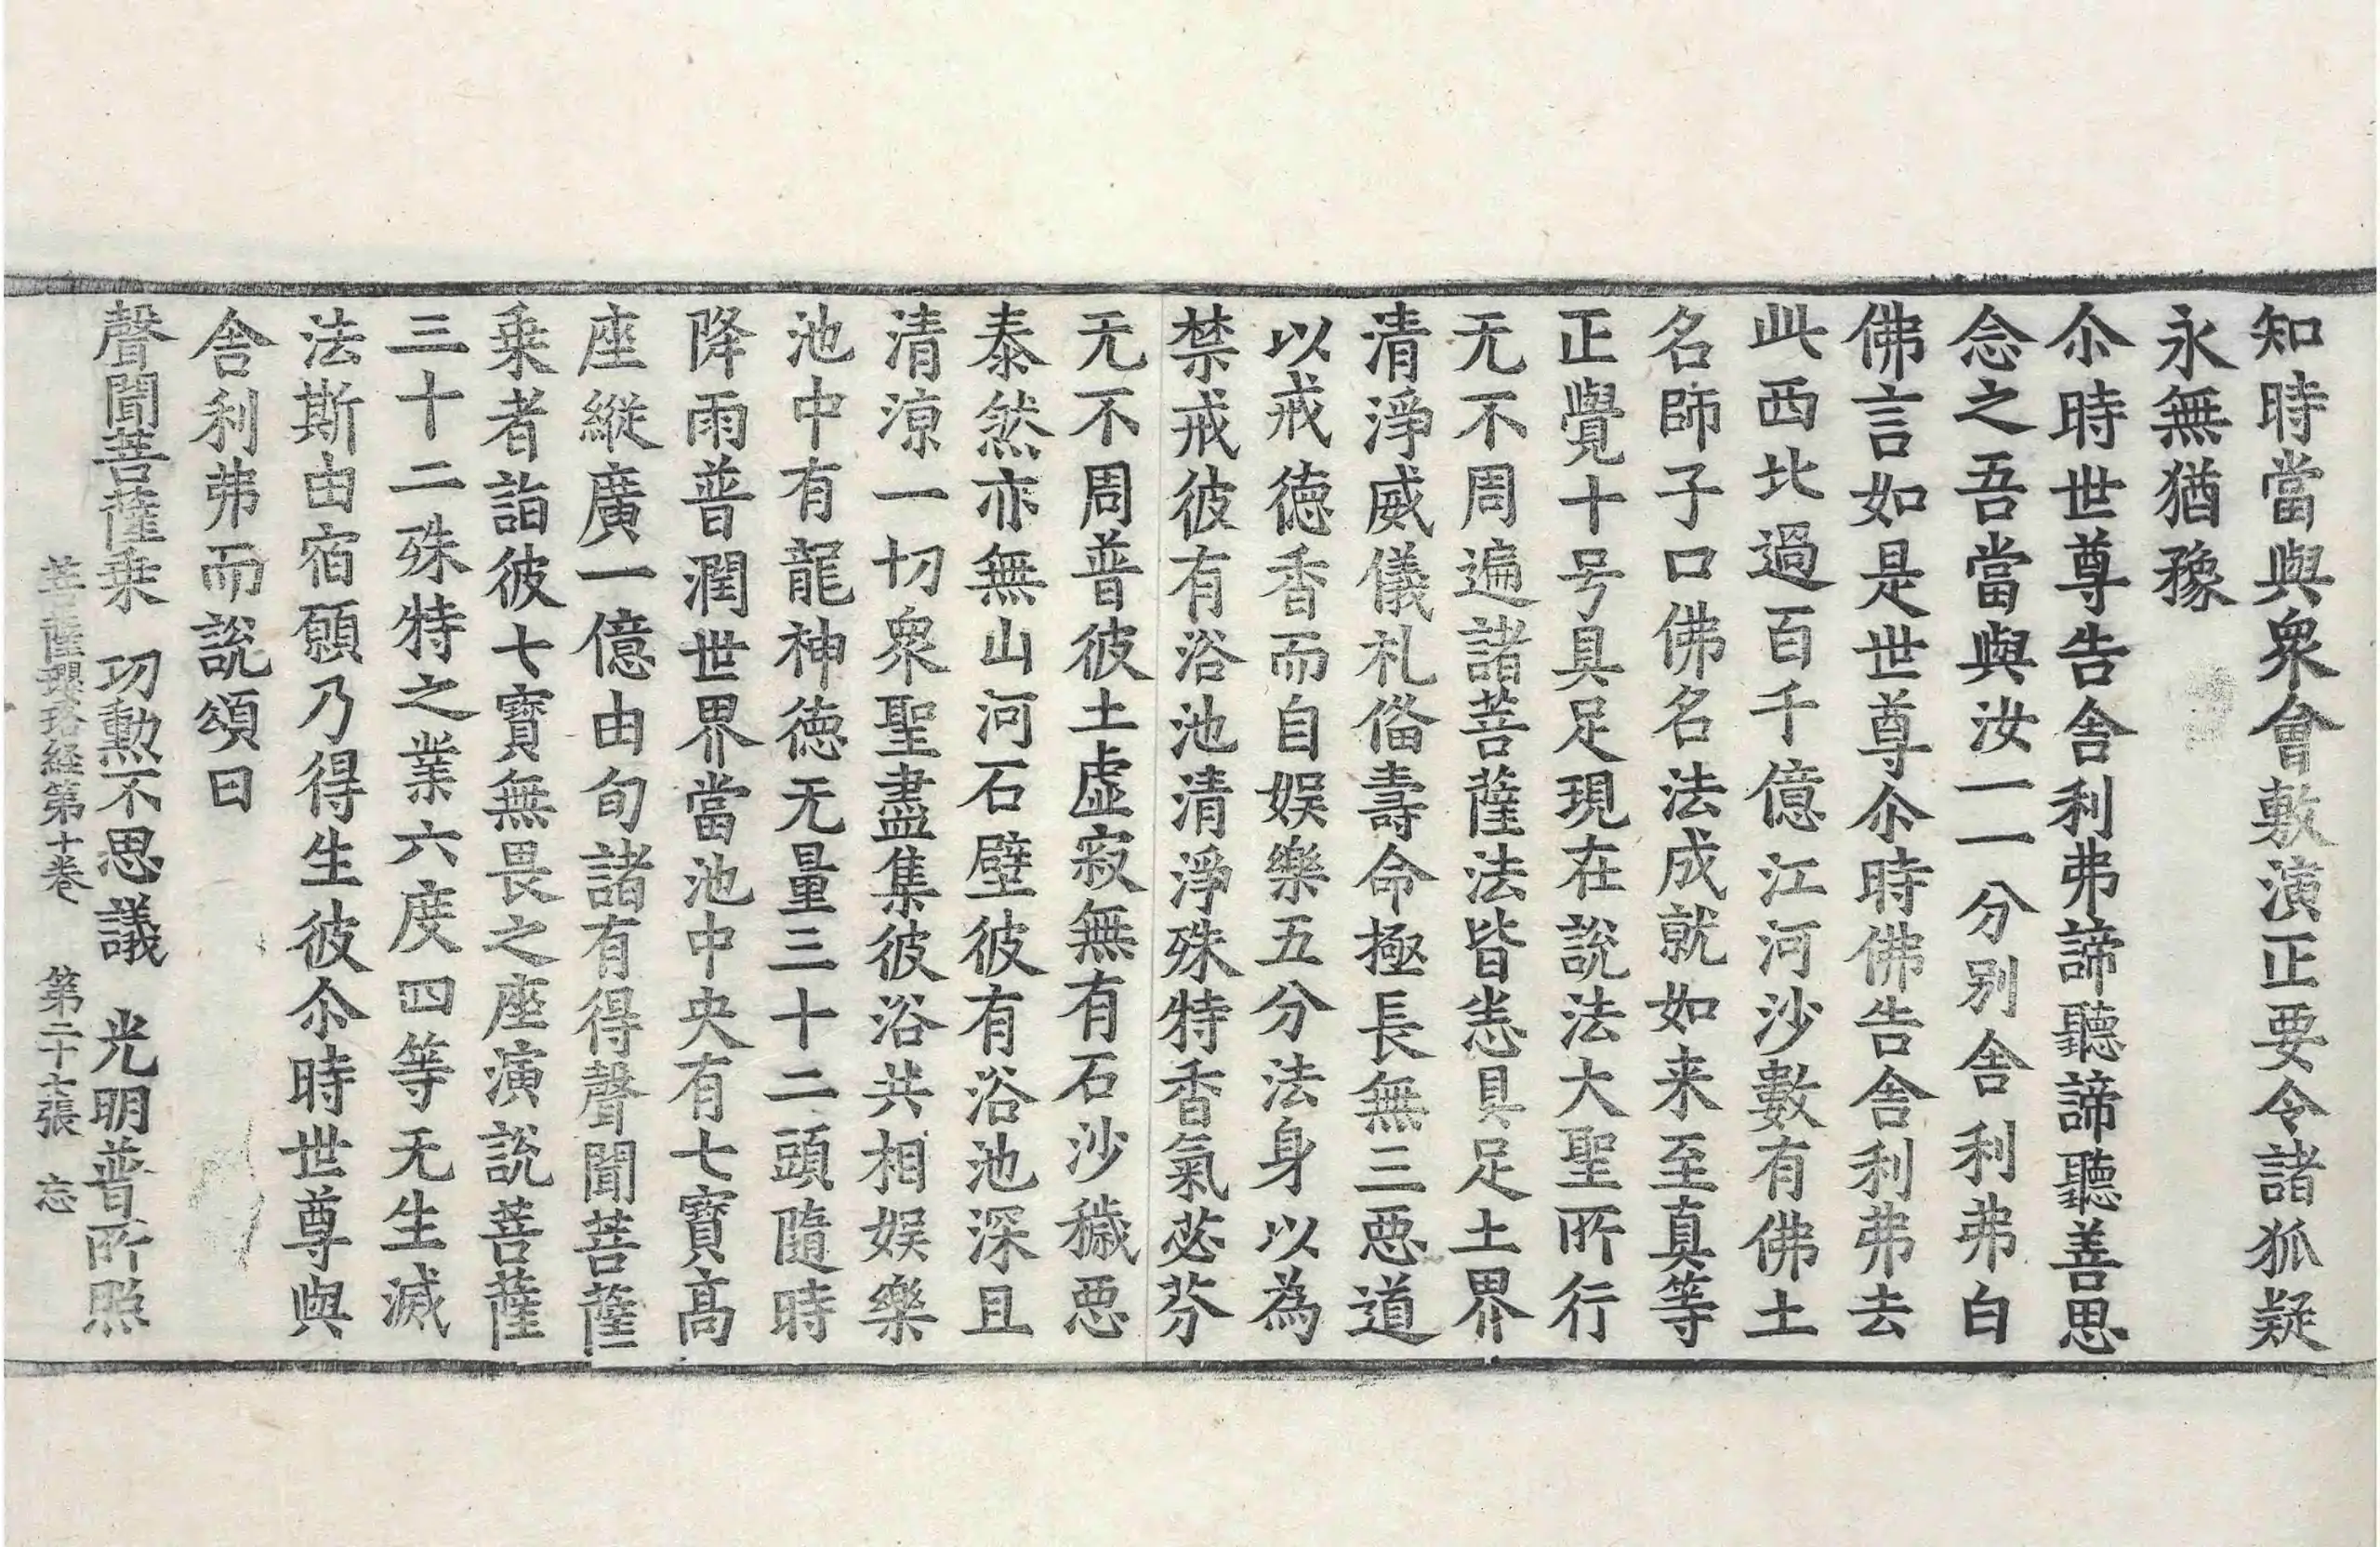 知時當與衆會敷演正要令諸狐疑
永無猶豫
尒時世尊告舎利弗諦聽諦聽善思
念之吾當與汝一一分别舎利弗白
佛言如是世尊尒時佛告舎利弗去
此西北過百千億江河沙數有佛土
名師子口佛名法成就如来至真等
正覺十号具足現在說法大聖所行
无不周遍諸菩薩法皆悉具足土界
清淨威儀礼俻壽命極長無三惡道
以戒徳香而自娱樂五分法身以為
禁戒彼有浴池清淨殊特香氣苾芬
无不周普彼土虚寂無有石沙穢惡
泰然亦無山河石壁彼有浴池深且
清涼一切衆聖盡集彼浴共相娱樂
池中有龍神徳无量三十二頭隨時
降雨普潤世界當池中央有七寳髙
座縱廣一億由旬諸有得聲聞菩薩
乗者詣彼七寳無畏之座演說菩薩
三十二殊特之業六度四等无生滅
法斯由宿願乃得生彼尒時世尊與
舎利弗而說頌曰
聲聞菩薩乗　功勲不思議　光明普所照
菩薩瓔珞経第十卷　第二十七張　忘